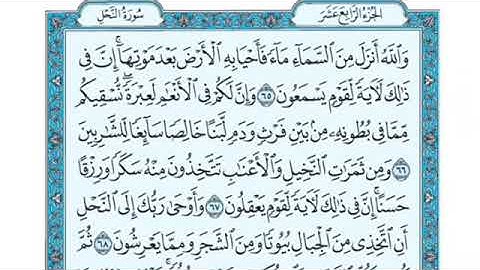 الجزء الرابع عشر
سورة النحل
وَاللَّهُ أَنزَلَ مِنَ السَّمَاءِ مَاءً فَأَحْيَا بِهِ الْأَرْضَ بَعْدَ مَوْتِهَا ۚ إِنَّ فِي
ذَٰلِكَ لَآيَةً لِّقَوْمٍ يَسْمَعُونَ ٦٥ وَإِنَّ لَكُمْ فِي الْأَنْعَامِ لَعِبْرَةً ۖ نُّسْقِيكُم
مِّمَّا فِي بُطُونِهِ مِن بَيْنِ فَرْثٍ وَدَمٍ لَّبَنًا خَالِصًا سَائِغًا لِّلشَّارِبِينَ
٦٦ وَمِن ثَمَرَاتِ النَّخِيلِ وَالْأَعْنَابِ تَتَّخِذُونَ مِنْهُ سَكَرًا وَرِزْقًا
حَسَنًا ۗ إِنَّ فِي ذَٰلِكَ لَآيَةً لِّقَوْمٍ يَعْقِلُونَ ٦٧ وَأَوْحَىٰ رَبُّكَ إِلَى النَّحْلِ
أَنِ اتَّخِذِي مِنَ الْجِبَالِ بُيُوتًا وَمِنَ الشَّجَرِ وَمِمَّا يَعْرِشُونَ ٦٨ ثُمَّ